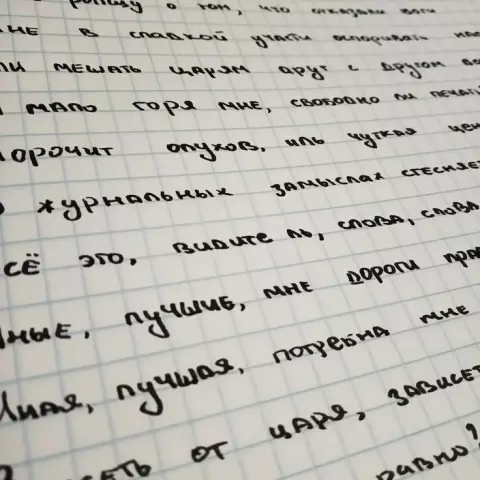 ропщу о том, что отказали боги
мне в сладкой участи оспоривать
мешать царям друг с другом
мало горя мне, свободно ли
морочит олухов, иль чуткая
журнальных замыслах стесняет
всё это, видите ль, слова, слова
иные, лучшие, мне дороги
Иная, лучшая, потребна мне
от царя, зависеть
равно?